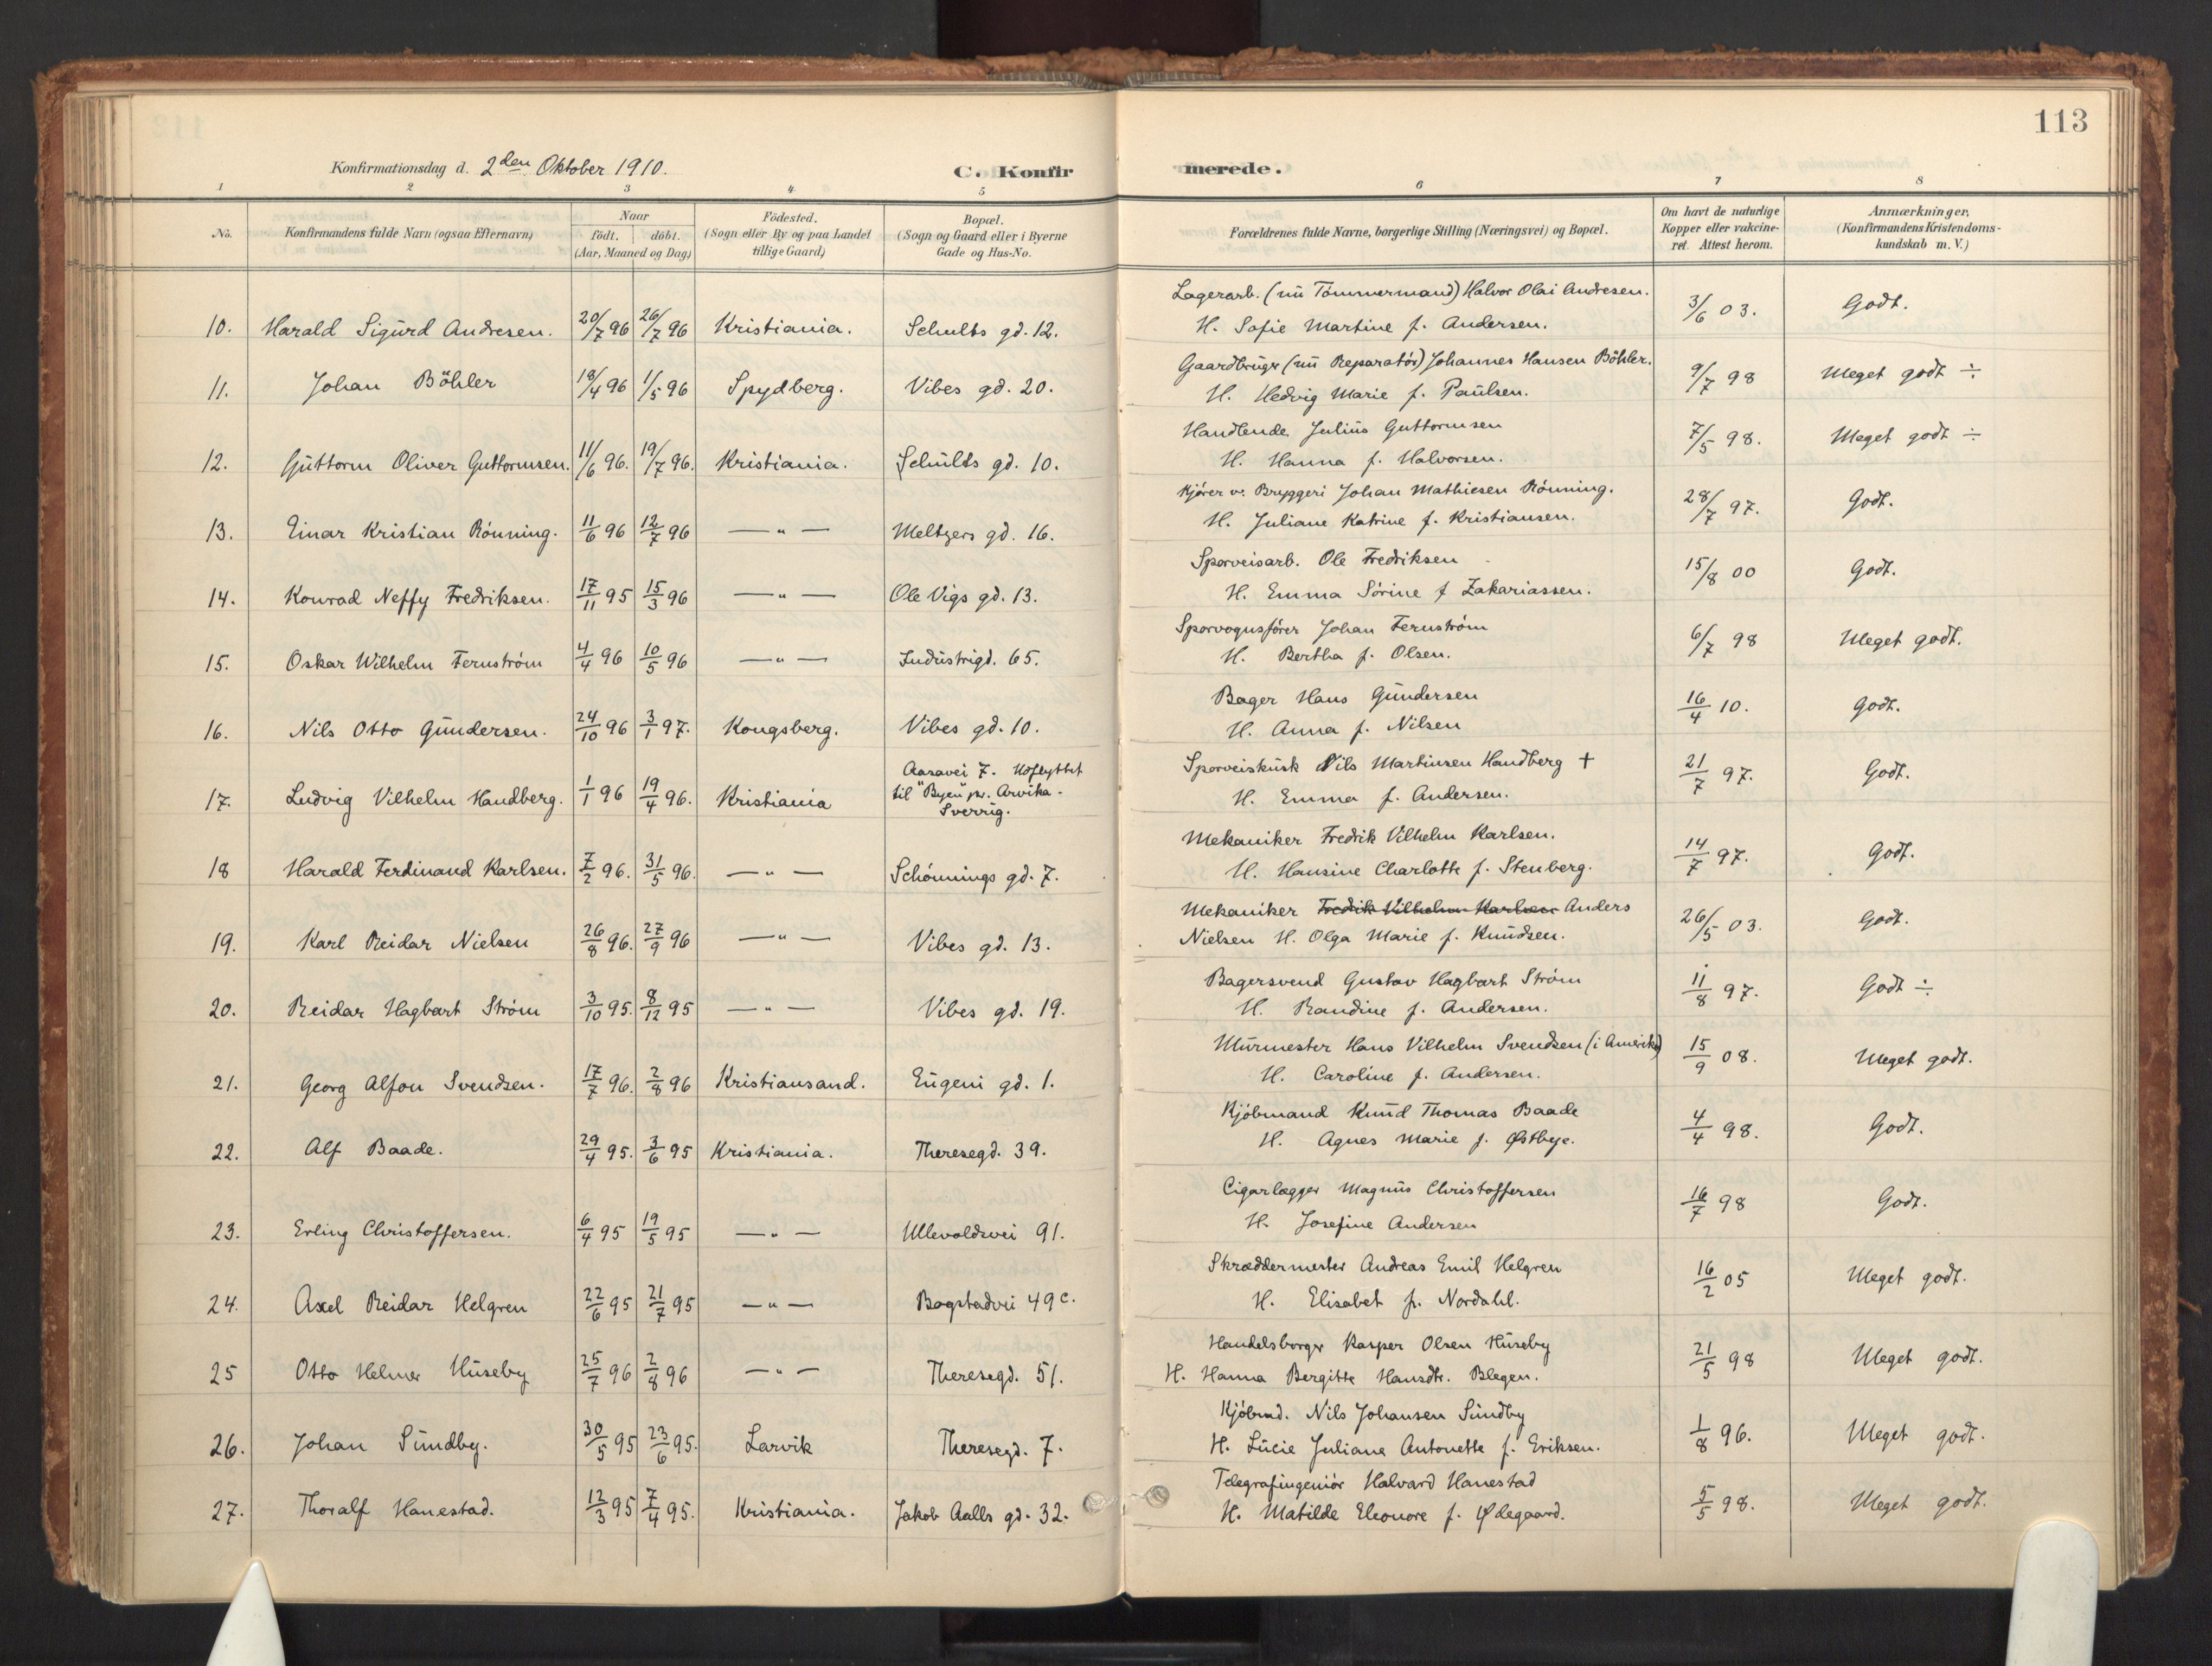 113
Konfirmationsdag d. 2den Oktober 1910. C. Konfirmerede.
1 2 3 4 5 6 7 8
No. Konfirmandens fulde Navn (ogsaa Efternavn) Naar födt. döbt. (Aar, Maaned og Dag) Födested. (Sogn eller By og paa Landet tillige Gaard) Bopæl. (Sogn og Gaard eller i Byerne Gade og Hus-No. Forældrenes fulde Navne, borgerlige Stilling (Næringsvei) og Bopæl. Om havt de naturlige Kopper eller vakcineret. Attest herom. Anmærkninger, (Konfirmandens Kristendomskundskab m. V.)
Lagerarb. (nu Tömmermand) Halvor Olai Andresen.
10. Harald Sigurd Andresen. 20/7 96 26/7 96 Kristiania. Schults gd. 12. H. Sofie Martine f. Andersen. 3/6 03. Godt.
Gaardbruger (nu Reparatör) Johannes Hansen Böhler.
11. Johan Böhler 18/4 96 1/5 96 Spydberg. Vibes gd. 20. H. Hedvig Marie f. Paulsen. 9/7 98 Meget godt ÷
Handlende Julius Guttormsen
12. Guttorm Oliver Guttormsen. 11/6 96. 19/7 96. Kristiania. Schults gd. 10. H. Hanna f. Halvorsen. 7/5 98. Meget godt ÷
Kjörer v. Bryggeri Johan Mathiesen Rönning.
13. Einar Kristian Rönning. 11/6 96 12/7 96 — " — Meltzers gd. 16. H. Juliane Katrine f. Kristiansen. 28/7 97. Godt.
Sporveisarb. Ole Fredriksen
14. Konrad Neffy Fredriksen. 17/11 95 15/3 96 — " — Ole Vigs gd. 13. H. Emma Sörine f Zakariassen. 15/8 00 Godt.
Sporvognsförer Johan Fernström
15. Oskar Wilhelm Fernström 4/4 96 10/5 96 — " — Industrigd. 65. H. Bertha f. Olsen. 6/7 98 Meget godt.
Bager Hans Gundersen
16. Nils Otto Gundersen. 24/10 96 3/1 97. Kongsberg. Vibes gd. 10. H. Anna f. Nilsen 16/4 10. Godt.
Aasavei 7. Udflyttet til "Byen" pr. Arvika - Sverrig. Sporveiskusk Nils Martinsen Handberg +
17. Ludvig Vilhelm Handberg. 1/1 96 19/4 96. Kristiania H. Emma f. Andersen. 21/7 97. Godt.
Mekaniker Fredrik Vilhelm Karlsen.
18 Harald Ferdinand Karlsen. 7/2 96. 31/5 96. — " — Schönnings gd. 7. H. Hansine Charlotte f. Stenberg. 14/7 97. Godt.
Mekaniker Fredrik Vilhelm Karlsen Anders
19. Karl Reidar Nielsen 26/8 96. 27/9 96 — " — Vibes gd. 13. Nielsen H. Olga Marie f. Knudsen. 26/5 03. Godt.
Bagersvend Gustav Hagbart Ström
20. Reidar Hagbart Ström 3/10 95. 8/12 95 — " — Vibes gd. 19. H. Randine f. Andersen. 11/8 97. Godt ÷
Murmester Hans Vilhelm Svendsen (i Amerika)
21. Georg Alfon Svendsen. 17/7 96. 2/8 96 Kristiansand. Eugeni gd. 1. H. Caroline f. Andersen. 15/9 08. Meget godt.
Kjöbmand Knud Thomas Baade
22. Alf Baade. 29/4 95. 3/6 95 Kristiania. Theresegd. 39. H. Agnes Marie f. Østbye. 4/4 98. Godt.
Cigarlægger Magnus Christoffersen
23. Erling Christoffersen. 6/4 95 19/5 95 — " — Ullevoldsvei 91. H. Josefine Andersen 16/7 98 Godt.
Skræddermester Andreas Emil Helgren
24. Axel Reidar Helgren 22/6 95 21/7 95 — " — Bogstadvei 49c. H. Elisabet f. Nordahl. 16/2 05 Meget godt.
Handelsborger Kasper Olsen Huseby
25 Otto Helmer Huseby 25/7 96 2/8 96 — " — Theresegd. 51. H. Hanna Bergitte Hansdtr. Blegen. 21/5 98 Meget godt.
Kjöbmd. Nils Johansen Sundby
26. Johan Sundby. 30/5 95 23/6 95. Larvik Theresegd. 7. H. Lucie Juliane Antonette f. Eriksen. 1/8 96. Meget godt.
Telegrafingeniör Halvard Hanestad
27. Thoralf Hanestad. 12/3 95 7/4 95. Kristiania. Jakob Aalls gd. 32. H. Matilde Eleonore f. Ødegaard. 5/5 98. Meget godt.